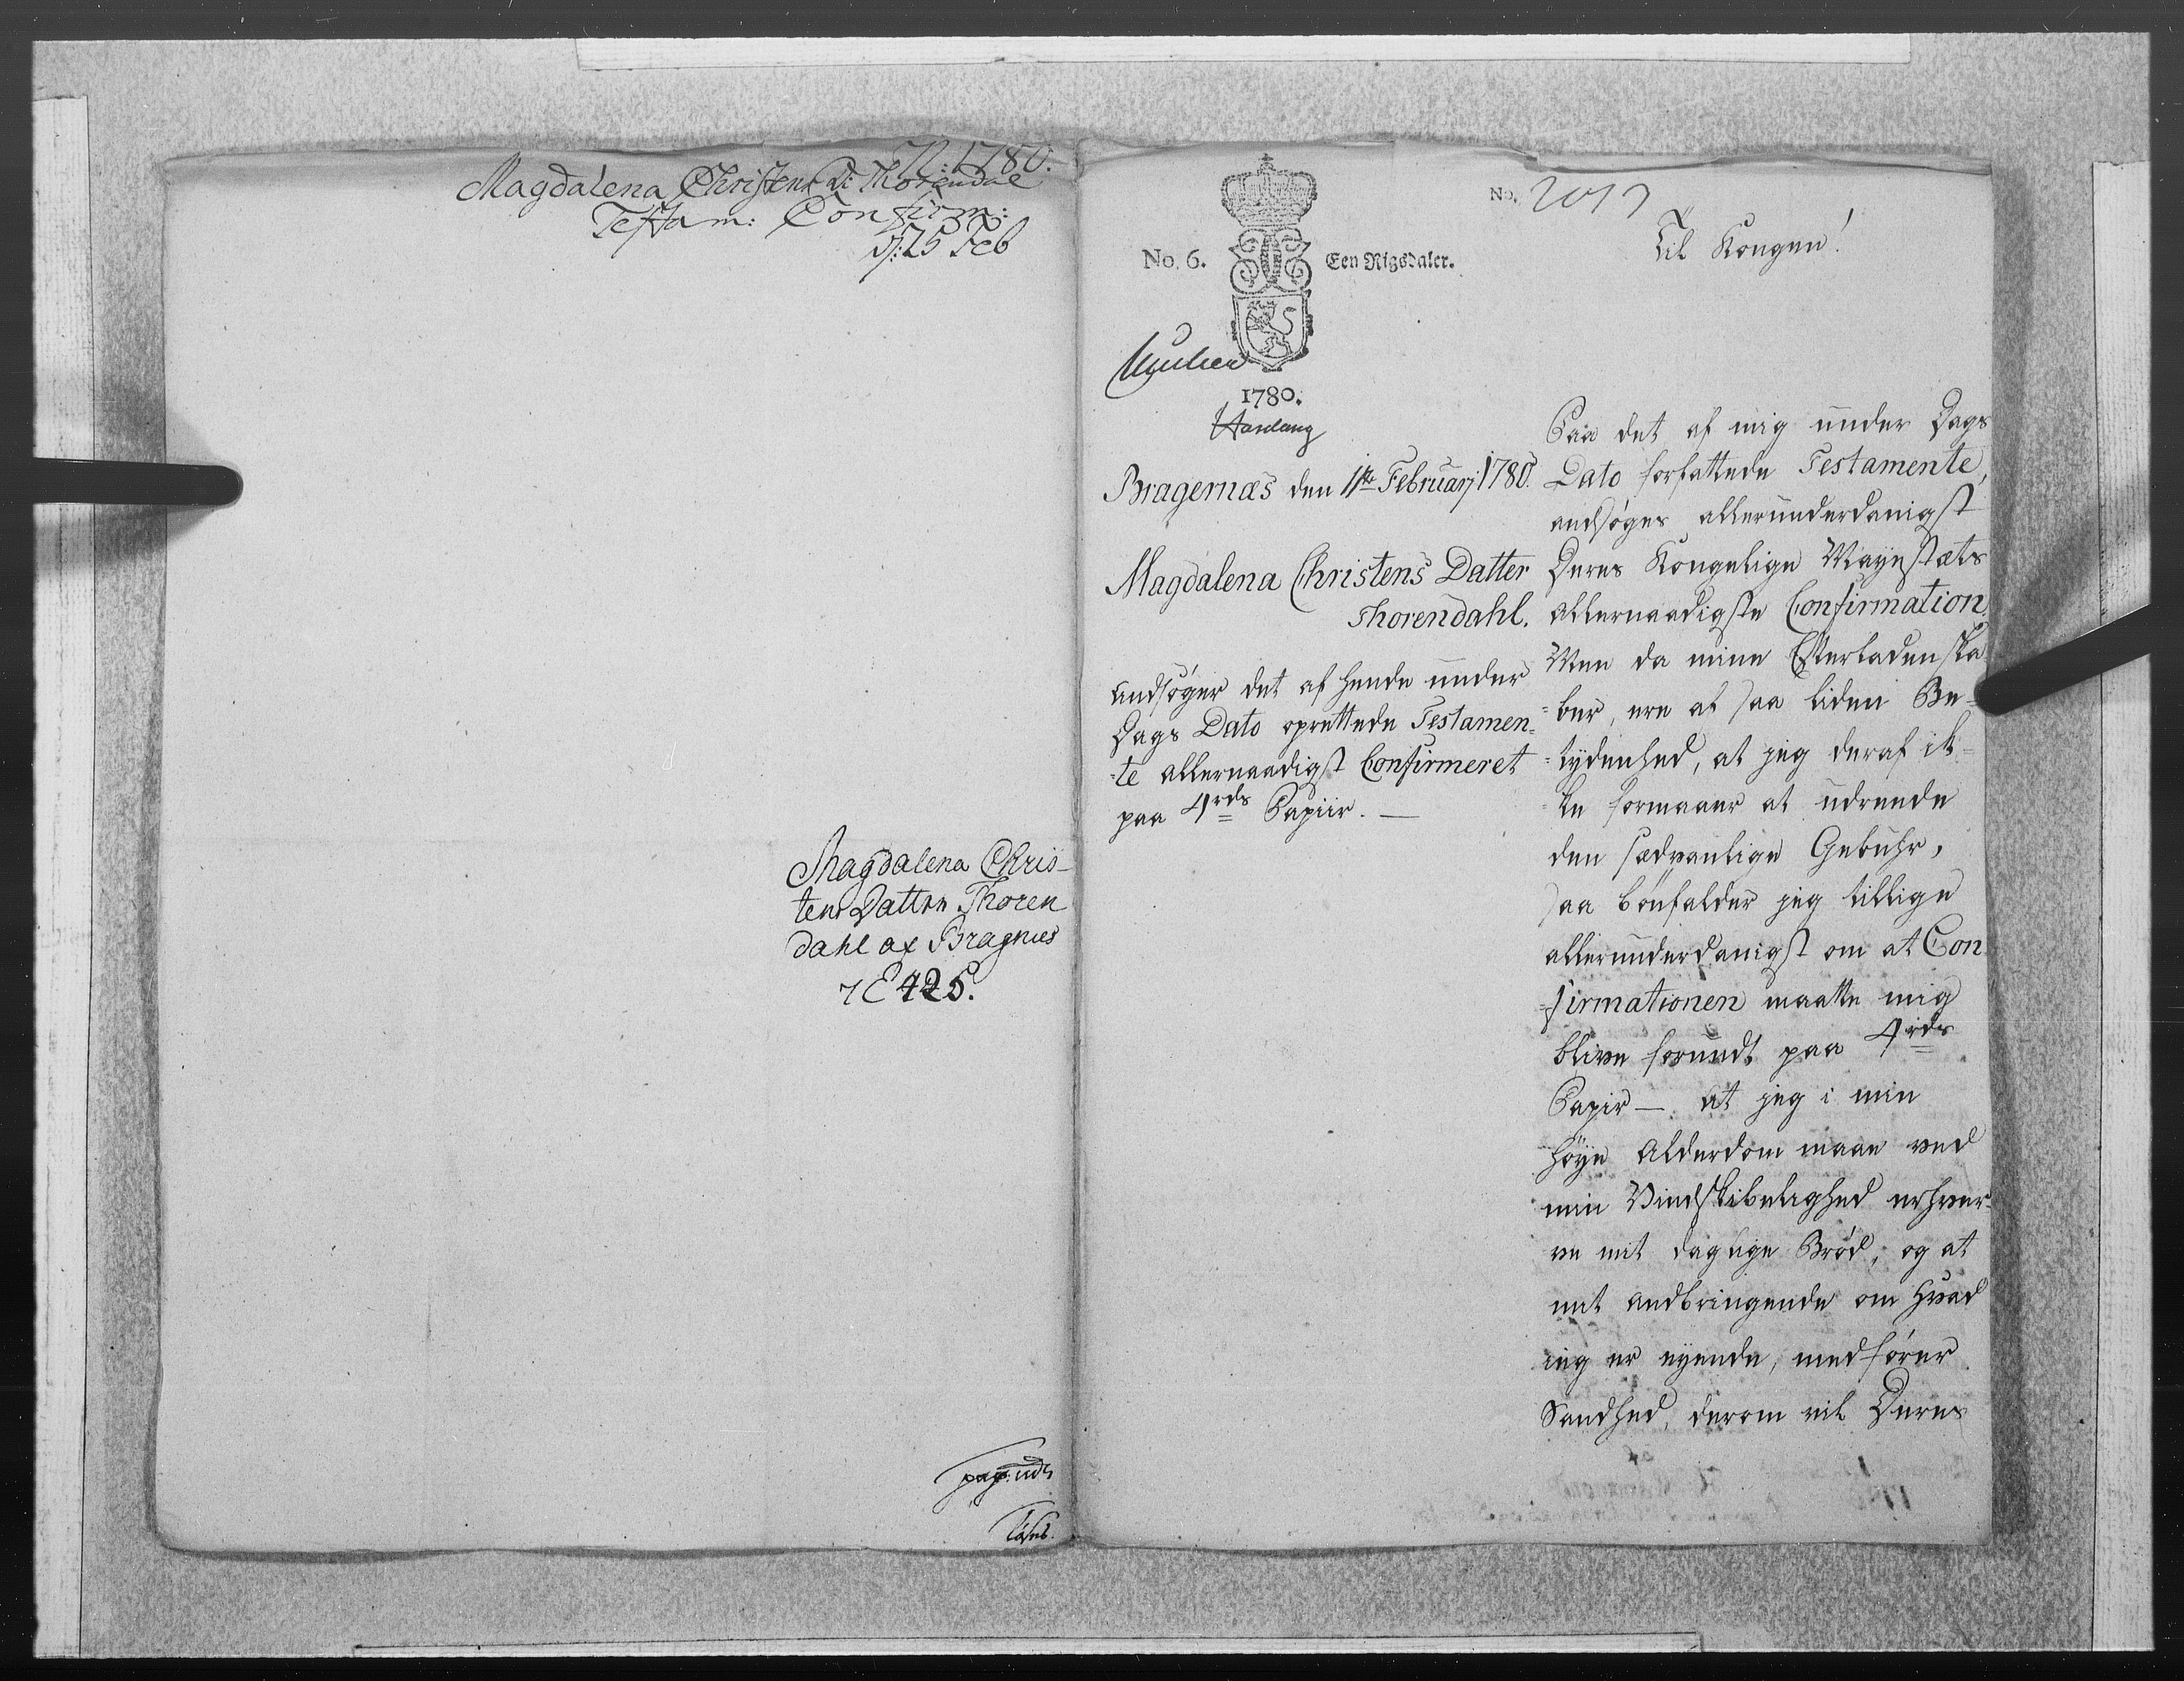 N: 1780.
Magdalena Christens D: Thorendal
Testam: Confirm:
d: 25 Feb
Magdalena Chris-
tens Datter Thoren
dahl ax Bragnes
7 E 425.
No. 6.
Een Rigsdaler.
1780.
Bragernæs den 11te Februarj 1780.
Magdalena Christens Datter
Thorendahl.
andsøger det af hende under
Dags Dato oprettede Testamen-
-te allernaadigst Confirmeret
paa 4rds Papiir. —
No. 2017
Til Kongen!
Paa det af mig under Dags
Dato forfattede Testamente,
andsøges allerunderdanigst
Deres Kongelige Mayestæts
allernaadigste Confirmation.
Men da mine Efterladenska
-ber, ere af saa liden Be-
-tydenhed, at jeg deraf ik-
-ke formaaer at udrede
den sædvanlige Gebuhr,
saa bønfalder jeg tillige
allerunderdanigst om at Con
-firmationen maatte mig
blive forundt paa 4rds
Papir — at jeg i min
høye Alderdom maae ved
min Vindskibelighed erhver-
ve mit daglige Brød, og at
mit andbringende om hvad
jeg er eyende, medfører
Sandhed, derom vil Deres